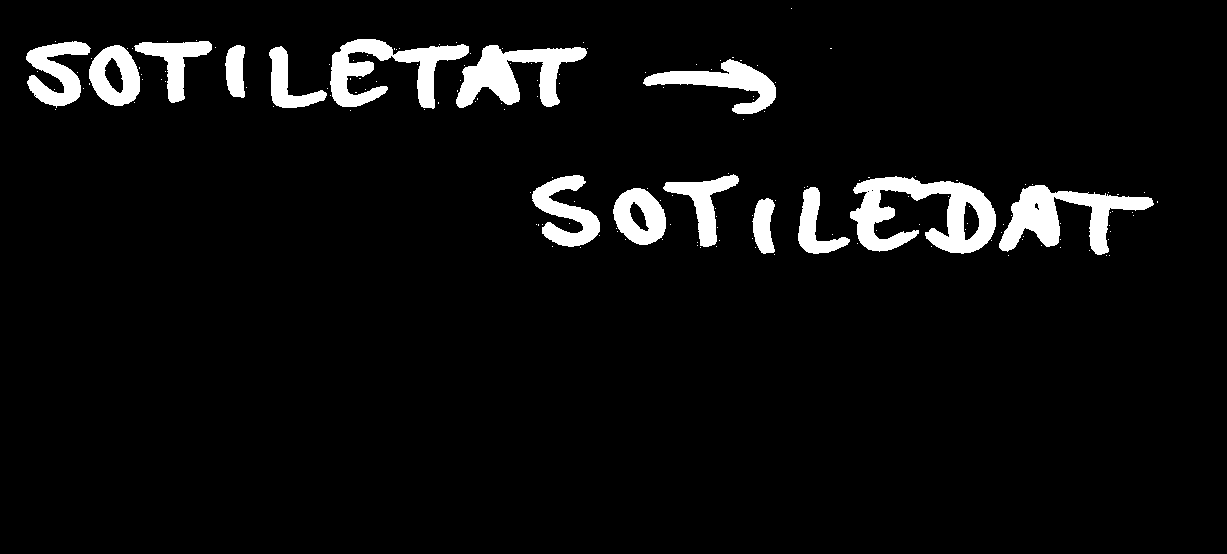 SOTILETAT →
SOTILEDAT